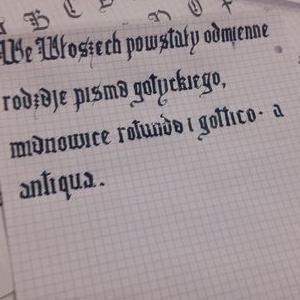 B C D
n o
We Włoszech powstały odmienne
rodzaje pisma gotyckiego,
mianowice rotunda i gottico- a
antiqua.